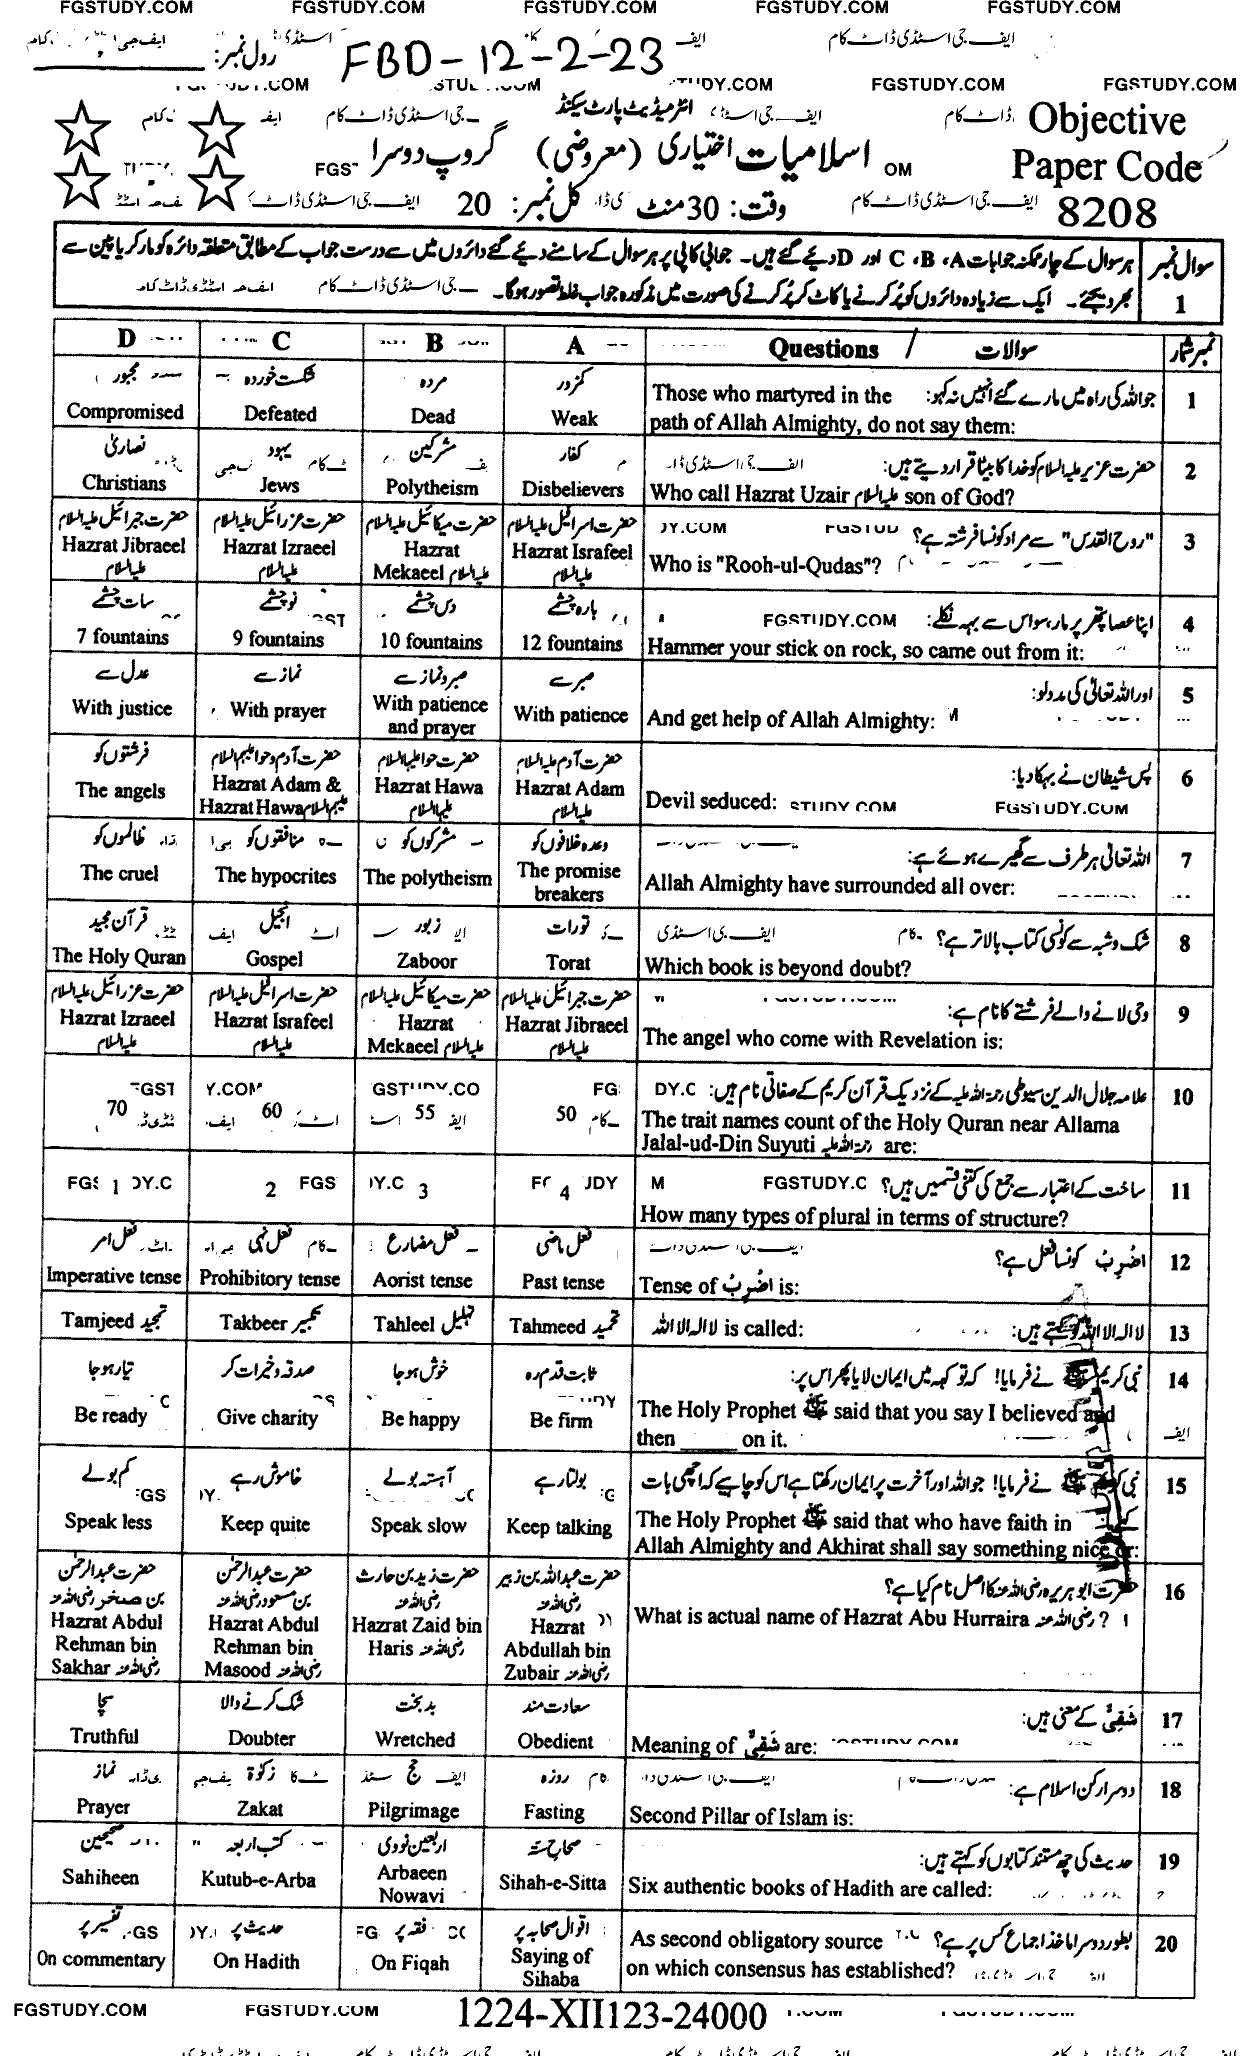 FGSTUDY.COM FGSTUDY.COM FGSTUDY.COM FGSTUDY.COM FGSTUDY.COM
رول نمبر: FBD-12-2-23
FGSTUDY.COM FGSTUDY.COM
انٹرمیڈیٹ پارٹ سیکنڈ
Objective
Paper Code
8208
اسلامیات اختیاری (معروضی) گروپ دوسرا
وقت: 30 منٹ کل نمبر: 20
سوال نمبر 1
ہر سوال کے چار ممکنہ جوابات A، B، C اور D دیئے گئے ہیں۔ جوابی کاپی پر ہر سوال کے سامنے دیئے گئے دائروں میں سے درست جواب کے مطابق متعلقہ دائرہ کو مارکر یا پین سے
بھر دیجئے۔ ایک سے زیادہ دائروں کو پُر کرنے یا کاٹ کر پُر کرنے کی صورت میں مذکورہ جواب غلط تصور ہوگا۔
D C B A Questions / سوالات نمبر شمار
1 جو اللہ کی راہ میں مارے گئے انہیں نہ کہو:
Those who martyred in the
path of Allah Almighty, do not say them:
کمزور مردہ شکست خوردہ مجبور
Weak Dead Defeated Compromised
2 حضرت عزیر علیہ السلام کو خدا کا بیٹا قرار دیتے ہیں:
Who call Hazrat Uzair علیہ السلام son of God?
کفار مشرکین یہود نصاریٰ
Disbelievers Polytheism Jews Christians
3 "روح القدس" سے مراد کونسا فرشتہ ہے؟
Who is "Rooh-ul-Qudas"?
حضرت اسرافیل علیہ السلام حضرت میکائیل علیہ السلام حضرت عزرائیل علیہ السلام حضرت جبرائیل علیہ السلام
Hazrat Israfeel علیہ السلام Hazrat Mekaeel علیہ السلام Hazrat Izraeel علیہ السلام Hazrat Jibraeel علیہ السلام
4 اپنا عصا پتھر پر مارو سو اس سے بہہ نکلے:
FGSTUDY.COM
Hammer your stick on rock, so came out from it:
بارہ چشمے دس چشمے نو چشمے سات چشمے
12 fountains 10 fountains 9 fountains 7 fountains
5 اور اللہ تعالیٰ کی مدد لو:
And get help of Allah Almighty:
صبر سے صبر و نماز سے نماز سے عدل سے
With patience With patience and prayer With prayer With justice
6 پس شیطان نے بہکا دیا:
Devil seduced:
FGSTUDY.COM
حضرت آدم علیہ السلام حضرت حوا علیہا السلام حضرت آدم و حوا علیہم السلام فرشتوں کو
Hazrat Adam علیہ السلام Hazrat Hawa علیہا السلام Hazrat Adam & Hazrat Hawa علیہم السلام The angels
7 اللہ تعالیٰ ہر طرف سے گھیرے ہوئے ہے:
Allah Almighty have surrounded all over:
وعدہ خلافوں کو مشرکوں کو منافقوں کو ظالموں کو
The promise breakers The polytheism The hypocrites The cruel
8 شک و شبہ سے کونسی کتاب بالاتر ہے؟
Which book is beyond doubt?
تورات زبور انجیل قرآن مجید
Torat Zaboor Gospel The Holy Quran
9 وحی لانے والے فرشتے کا نام ہے:
The angel who come with Revelation is:
حضرت جبرائیل علیہ السلام حضرت میکائیل علیہ السلام حضرت اسرافیل علیہ السلام حضرت عزرائیل علیہ السلام
Hazrat Jibraeel علیہ السلام Hazrat Mekaeel علیہ السلام Hazrat Israfeel علیہ السلام Hazrat Izraeel علیہ السلام
10 علامہ جلال الدین سیوطی رحمۃ اللہ علیہ کے نزدیک قرآن کریم کے صفاتی نام ہیں:
The trait names count of the Holy Quran near Allama
Jalal-ud-Din Suyuti رحمۃ اللہ علیہ are:
50 55 60 70
11 ساخت کے اعتبار سے جمع کی کتنی قسمیں ہیں؟
How many types of plural in terms of structure?
4 3 2 1
12 اضْرِبْ کونسا فعل ہے؟
Tense of اضْرِبْ is:
فعل ماضی فعل مضارع فعل نہی فعل امر
Past tense Aorist tense Prohibitory tense Imperative tense
13 لا الہ الا اللہ کو کہتے ہیں:
لا الہ الا اللہ is called:
Tahmeed تحمید Tahleel تہلیل Takbeer تکبیر Tamjeed تمجید
14 نبی کریم ﷺ نے فرمایا! کہ تو کہہ میں ایمان لایا پھر اس پر:
The Holy Prophet ﷺ said that you say I believed and
then ____ on it.
ثابت قدم رہ خوش ہو جا صدقہ و خیرات کر تیار ہو جا
Be firm Be happy Give charity Be ready
15 نبی ﷺ نے فرمایا! جو اللہ اور آخرت پر ایمان رکھتا ہے اس کو چاہیے کہ اچھی بات
The Holy Prophet ﷺ said that who have faith in
Allah Almighty and Akhirat shall say something nice or:
بولتا رہے آہستہ بولے خاموش رہے کم بولے
Keep talking Speak slow Keep quite Speak less
16 حضرت ابو ہریرہ رضی اللہ عنہ کا اصل نام کیا ہے؟
What is actual name of Hazrat Abu Hurraira رضی اللہ عنہ ?
حضرت عبداللہ بن زبیر رضی اللہ عنہ حضرت زید بن حارث رضی اللہ عنہ حضرت عبدالرحمٰن بن مسعود رضی اللہ عنہ حضرت عبدالرحمٰن بن صخر رضی اللہ عنہ
Hazrat Abdullah bin Zubair رضی اللہ عنہ Hazrat Zaid bin Haris رضی اللہ عنہ Hazrat Abdul Rehman bin Masood رضی اللہ عنہ Hazrat Abdul Rehman bin Sakhar رضی اللہ عنہ
17 شَقِیٌّ کے معنی ہیں:
Meaning of شَقِیٌّ are:
سعادت مند بدبخت شک کرنے والا سچا
Obedient Wretched Doubter Truthful
18 دوسرا رکن اسلام ہے:
Second Pillar of Islam is:
روزہ حج زکوٰۃ نماز
Fasting Pilgrimage Zakat Prayer
19 حدیث کی چھ مستند کتابوں کو کہتے ہیں:
Six authentic books of Hadith are called:
صحاح ستہ اربعین نووی کتب اربعہ صحیحین
Sihah-e-Sitta Arbaeen Nowavi Kutub-e-Arba Sahiheen
20 بطور دوسرا ماخذ اجماع کس پر ہے؟
As second obligatory source
on which consensus has established?
اقوال صحابہ پر فقہ پر حدیث پر تفسیر پر
Saying of Sihaba On Fiqah On Hadith On commentary
FGSTUDY.COM FGSTUDY.COM 1224-XII123-24000